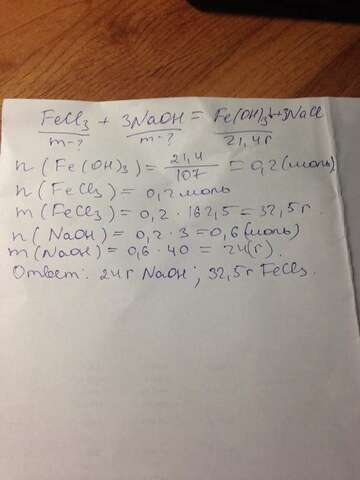 FeCl₃ + 3NaOH = Fe(OH)₃↓+3NaCl
m-? m-? 21,4г
n(Fe(OH)₃) = 21,4/107 = 0,2(моль)
n(FeCl₃) = 0,2 моль
m(FeCl₃) = 0,2 · 162,5 = 32,5г.
n(NaOH) = 0,2 · 3 = 0,6(моль)
m(NaOH) = 0,6 · 40 = 24(г).
Ответ: 24г NaOH; 32,5г FeCl₃.